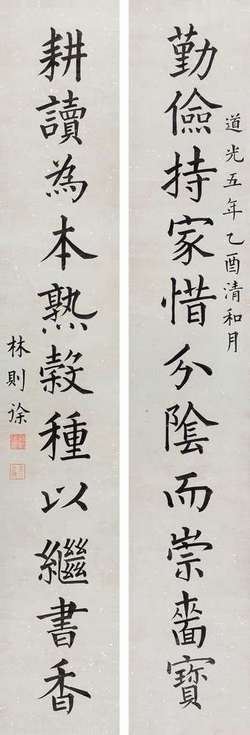 道光五年乙酉清和月
勤儉持家惜分陰而崇嗇寶
耕讀為本熟穀種以繼書香
林則徐